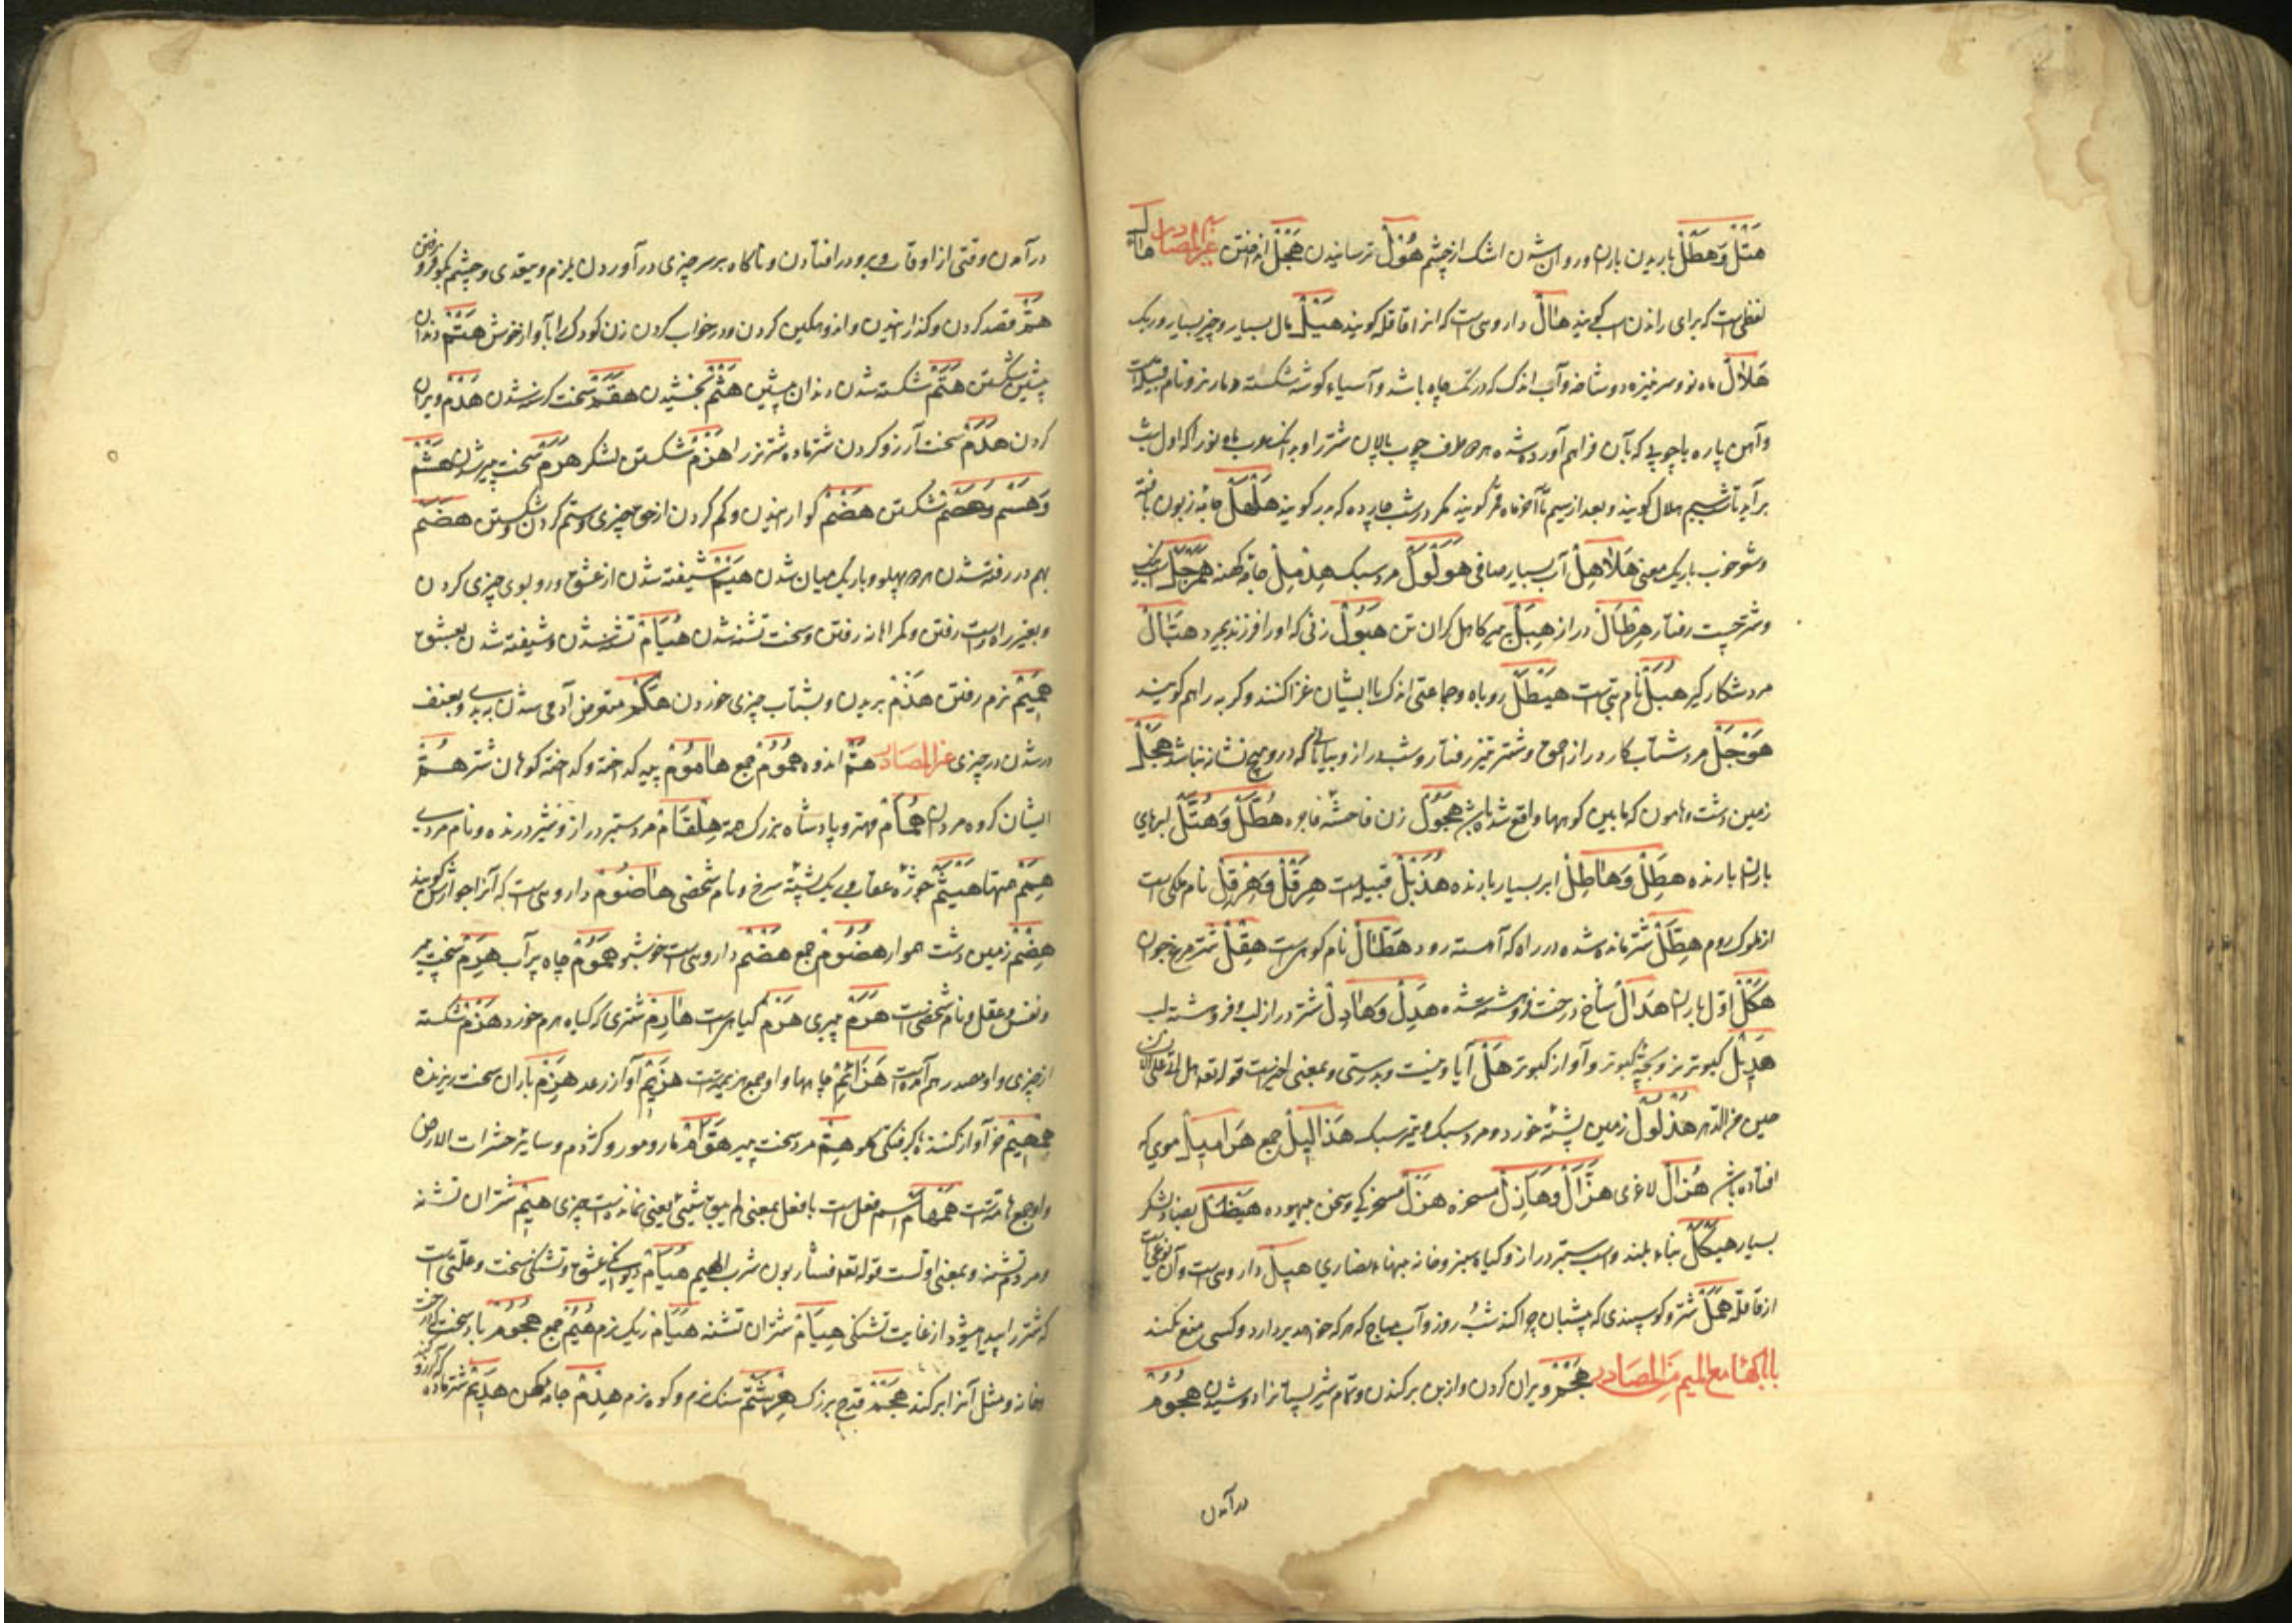 هَتْل وَهَطْل باریدن باران و روان شدن اشک از چشم هُوْل ترسانیدن هَجْل انداختن غیر المصادر هال
لفظیست که برای راندن اسب کویند هال داروییست که انرا قاقله کویند هَیْل مال بسیار و چیز بسیار و ریک
هَلال ماه نو و سر نیزه دو شاخه و آب اندک که در تک چاه باشد و آسیاء کوشه شکسته و مار نر و نام قبیله است
وآهن پاره یا چوبی که بآن فراهم آورده شده هر دو طرف چوب پالان شتر را و بدانکه عرب ماه نو را که اول شب
برآید تا شب سیم هلال کویند و بعد از سیم تا آخر ماه قمر کویند مکر در شب چارده که بدر کویند هَلْهَل جامۀ زبون بافته
و شعر خوب باریک معنی هَلاهِل آب بسیار صافی هَوَلْوَل مرد سبک هِدْمِل جامۀ کهنه هَمَرْجَل اسب نیک
و شتر چست رفتار هِرْطال دراز هِبَلّ پیر کاهل کران تن هَبُوْل زنی که اورا فرزند بمیرد هَبّال
مرد شکار کیر هُبَل نام بتی است هَیْطَل روباه و جماعتی اندک که با ایشان غزا کنند و کربه را هم کویند
هَوْجَل مرد شتاب کار دراز احمق و شتر تیز رفتار و شب دراز و بیابانی که درو هیچ نشانه نباشد هَجْل
زمین دشت و هامون که مابین کوهها واقع شده باشد هَجُوْل زن فاحشه فاجره هُطَّل وَهُتَّل ابرهای
باران بارنده هَطِل وَهاطِل ابر بسیار بارنده هُذَیْل قبیله است هِرَقْل وَهِرْقِل نام ملکی است
از ملوک روم هِطْل شتر مانده شده در راه که آهسته رود هَطّال نام کوهیست هِقْل شتر مرغ جوان
هَلَل اوّل باران هَدال شاخ درخت فروهشته شده هَدِل وَهادِل شتر دراز لب و فروهشته لب
هَدِیْل کبوتر نر و بچۀ کبوتر و آواز کبوتر هَلْ آیا و نیست و بدرستی و بمعنی اخیرست قوله تعالی هل اتی علی الانسان
حین من الدهر هُذْلُوْل زمین پشتۀ خورد و مرد سبک و تیر سبک هَذالِیْل جمع هَرامِیْل موی که
افتاده باشد هُزال لاغری هَزّال وَهازِل مسخره هَزْل مسخرکی و سخن بیهوده هَیْضَل لشکر
بسیار هَیْکَل بناء بلند و اسب ستبر دراز و کیاه سبز و خانه بتهاء نصاری هیل داروییست و آن نوعی است
از قاقله هَمَل شتر و کوسپندی که بی شبان چرا کند شب و روز و آب مباح که هر که خواهد بردارد و کسی منع نکند
باب الهاء مع المیم من المصادر هَجْم ویران کردن و از بن برکندن و تمام شیر پستانرا دوشیدن هُجُوْم
درآمدن
درآمدن وقتی از اوقات و برو درافتادن و ناکاه بر سر چیزی درآوردن بلزم و بیقدی و چشم بکو فرو رفتن
هَمّ قصد کردن و کدازانیدن و اندوهکین کردن و در خواب کردن زن کودک را بآواز خوش هَتْم دندان
پیشین شکستن هَتَم شکسته شدن دندان پیشین هَثْم بخشیدن هَقَم سخت کرسنه شدن هَدْم ویران
کردن هَدَم سخت آرزو کردن شتر ماده شتر نر را هَزْم شکستن لشکر هَرَم سخت پیر شدن هَشْم
وَهَسْم وَهَصْم شکستن هَضْم کوارانیدن و کم کردن از حق چیزی و ستم کردن و شکستن هَضَم
بهم در رفته شدن هر دو پهلو و باریک میان شدن هَیْم شیفته شدن از عشق و رو بوی چیزی کردن
و بغیر راه راست رفتن و کمراهانه رفتن و سخت تشنه شدن هُیام تشنه شدن و شیفته شدن بعشق
هَمِیْم نرم رفتن هَذْم بریدن و بشتاب چیزی خوردن هَکْم متعرض آدمی شدن ببدی و بعنف
در شدن در چیزی غیر المصادر هَمّ اندوه هُمُوْم جمع هامُوْم پیه کداخته و کداخته کوهان شتر هُمْ
ایشان کروه مردان هُمام مهتر و پادشاه بزرک همّة هِلْقام مرد ستبر دراز و شیر درنده و نام مردی
هِمَم همّتها هَیْثَم جوژۀ عقاب و ریک پشتۀ سرخ و نام شخصی هاضُوْم داروییست که آنرا جوارش کویند
هِضْم زمین دشت هموار هُضُوْم جمع هَضْم داروییست خوشبو هَمُوْم چاه پر آب هَرِم سخت پیر
و نفس و عقل و نام شخصی است هَرَم پیری هَرْم کیاهیست هارِم شتری که کیاه هرم خورد هَزْم شکسته
از چیزی و او مصدر هم آمده است هَزائِم چاهها و او جمع هزیمتست هَزِیْم آواز رعد هَزِم باران سخت ریزنده
هِمْهِیْم خر آواز کننده هِمّ مرد سخت پیر هَوامّ مار و مور و کژدم و سایر حشرات الارض
و او جمع هامّتست هَمْهام اسم فعل است بمعنی لم یبق شیئ یعنی نمانده است چیزی هِیْم شتران تشنه
و مردم تشنه و بمعنی اولست قوله تعالی فشاربون شرب الهیم هُیام دیوانکی عشق و تشنکی سخت و علّتی است
که شتر را پیدا میشود از غایت تشنکی هِیام شتران تشنه هَیام ریک نرم هُیُم جمع هَجُوْم باد سخت که درخت
و خانه و مثل آنرا برکند هَجْم قدح بزرک هِرْشَمّ سنک نرم و کوه نرم هِدْم جامۀ کهن هَدِم شتر ماده که آرزو کند